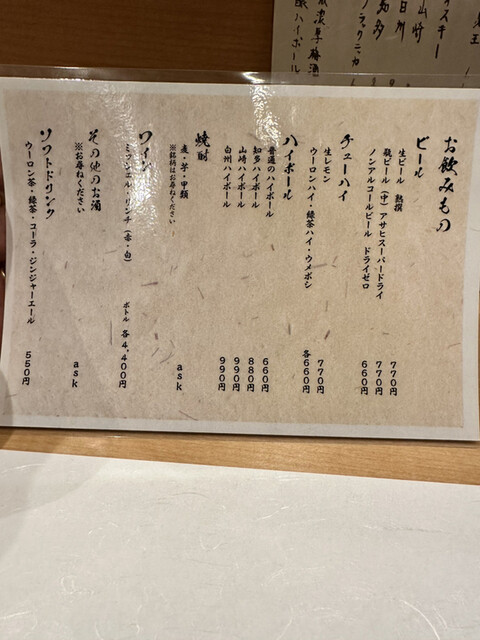 お飲みもの
ビール
生ビール 熟撰 770円
瓶ビール(中)アサヒスーパードライ 770円
ノンアルコールビール ドライゼロ 660円
チューハイ
生レモン 770円
ウーロンハイ・緑茶ハイ・ウメボシ 各660円
ハイボール
普通のハイボール 660円
知多ハイボール 880円
山崎ハイボール 990円
白州ハイボール 990円
焼酎
麦・芋・甲類 ask
※銘柄はお尋ねください
ワイン
ミッシェル・リンチ(赤・白) ボトル 各4,400円
その他のお酒
※お尋ねください ask
ソフトドリンク
ウーロン茶・緑茶・コーラ・ジンジャーエール 550円
スキー
山崎
白州
知多
ブラックニカ
梅酒
ハイボール